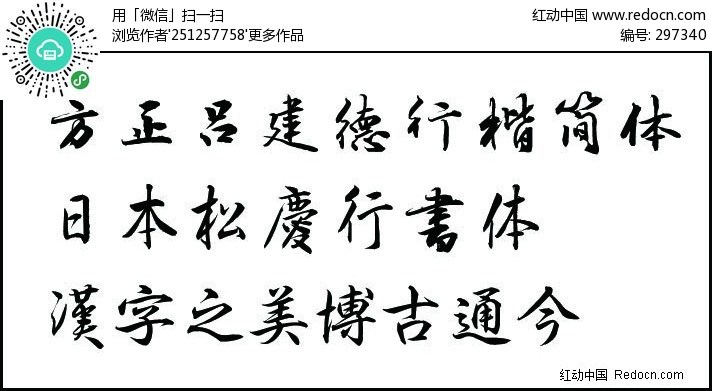 用「微信」扫一扫
红动中国 www.redocn.com
浏览作者'251257758'更多作品
编号: 297340
方正吕建德行楷简体
日本松慶行書体
漢字之美博古通今
红动中国 Redocn.com